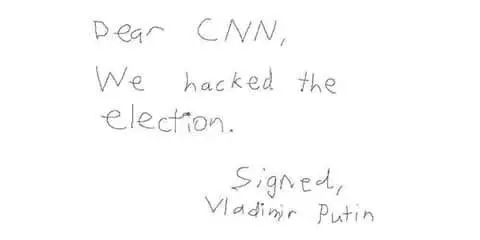 Dear CNN,
We hacked the
election.
Signed,
Vladimir Putin